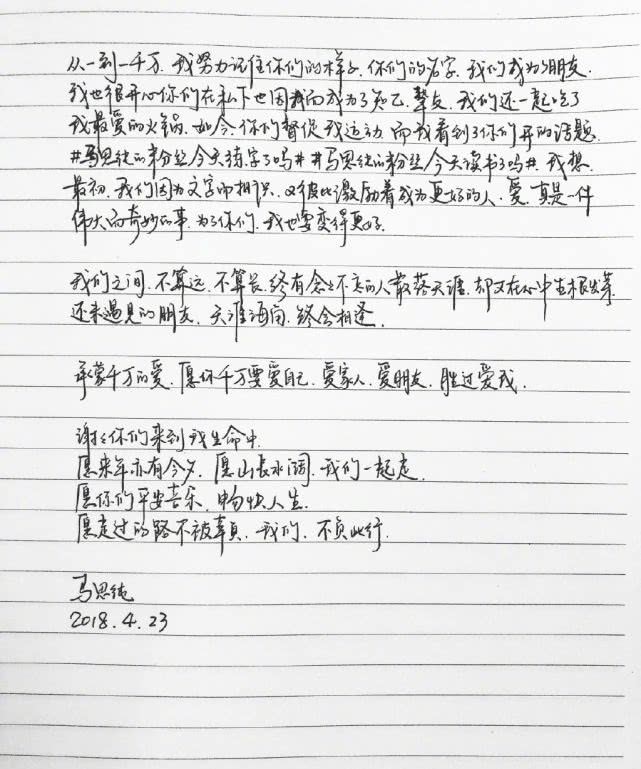 从一到一千万.我努力记住你们的样子.你们的名字.我们成为了朋友.
我也很开心你们在私下也因我而成为了知己.挚友.我们还一起吃了
我最爱的火锅.如今.你们督促我运动.而我看到了你们开的话题
#马思纯的粉丝今天练字了吗# #马思纯的粉丝今天读书了吗#.我想.
最初.我们因为文字而相识.又彼此激励着成为更好的人.爱.真是一件
伟大而奇妙的事.为了你们.我也要变得更好.
我们之间.不算远.不算长.终有念念不忘的人散落天涯.却又在心中生根发芽.
还未遇见的朋友.天涯海角.终会相逢.
承蒙千万的爱.愿你千万要爱自己.爱家人.爱朋友.胜过爱我.
谢谢你们来到我生命中.
愿来年亦有今夕.愿山长水阔.我们一起走.
愿你们平安喜乐.畅快人生.
愿走过的路不被辜负.我们.不负此行.
马思纯
2018.4.23